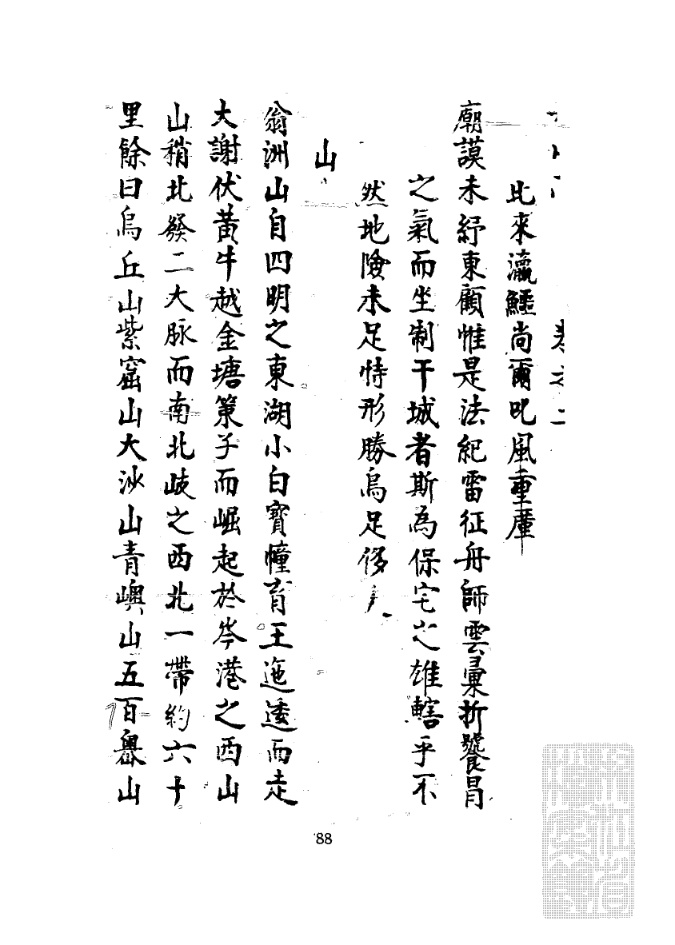 卷之二
比來瀛鱷尚爾叱風重廑
廟謨未紓東顧惟是法紀雷征舟師雲彙折襲冒
之氣而坐制干城者斯為保宅之雄轄乎不
然地險未足恃形勝烏足侈
山
翁洲山自四明之東湖小白寶幢育王迤逶而走
大謝伏黃牛越金塘策子而崛起於岑港之西山
山稍北發二大脉而南北岐之西北一帶約六十
里餘曰烏丘山紫窟山大沙山青嶼山五百嶴山
88